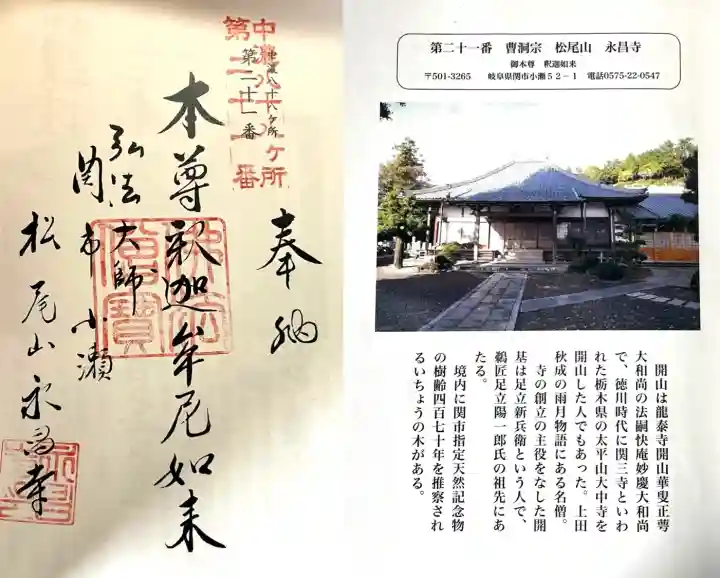 奉納
中濃八十八ヶ所
第二十一番
中濃八十八ヶ所
第二十一番
本尊釈迦牟尼如来
弘法大師
関市小瀬
松尾山永昌寺
第二十一番 曹洞宗 松尾山 永昌寺
御本尊 釈迦如来
〒501-3265 岐阜県関市小瀬52-1 電話0575-22-0547
開山は龍泰寺開山華叟正蕚
大和尚の法嗣快庵妙慶大和尚
で、徳川時代に関三寺といわ
れた栃木県の太平山大中寺を
開山した人でもあった。上田
秋成の雨月物語にある名僧。
寺の創立の主役をなした開
基は足立新兵衛という人で、
鵜匠足立陽一郎氏の祖先にあ
たる。
境内に関市指定天然記念物
の樹齢四百七十年を推察され
るいちょうの木がある。